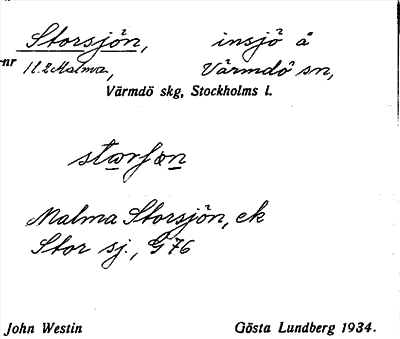 Storsjön, insjö å
nr 11.2 Malma, Värmdö sn,
Värmdö skg, Stockholms l.
Malma Storsjön, ek
Stor sj., G 76
John Westin Gösta Lundberg 1934.